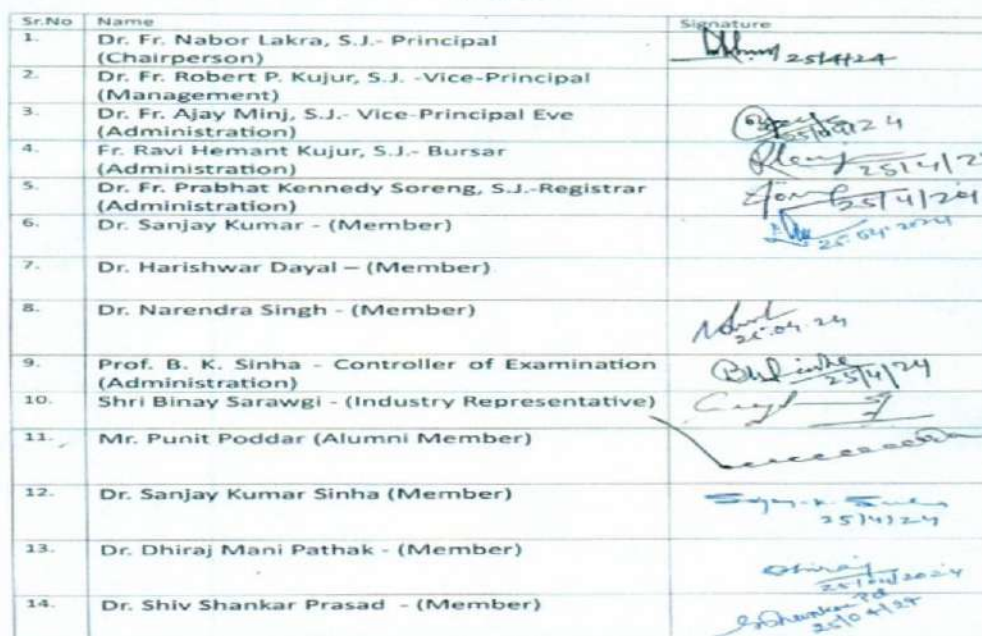 Sr.No Name Signature
1. Dr. Fr. Nabor Lakra, S.J.- Principal
(Chairperson) 25/4/24
2. Dr. Fr. Robert P. Kujur, S.J. -Vice-Principal
(Management)
3. Dr. Fr. Ajay Minj, S.J.- Vice-Principal Eve
(Administration) 25/04/24
4. Fr. Ravi Hemant Kujur, S.J.- Bursar
(Administration) 25/4/2
5. Dr. Fr. Prabhat Kennedy Soreng, S.J.-Registrar
(Administration) 25/4/24
6. Dr. Sanjay Kumar - (Member) 25.04.2024
7. Dr. Harishwar Dayal – (Member)
8. Dr. Narendra Singh - (Member)
25.04.24
9. Prof. B. K. Sinha - Controller of Examination
(Administration) 25/4/24
10. Shri Binay Sarawgi - (Industry Representative)
11. Mr. Punit Poddar (Alumni Member)
12. Dr. Sanjay Kumar Sinha (Member)
25/4/24
13. Dr. Dhiraj Mani Pathak - (Member) Dhiraj
25/04/2024
14. Dr. Shiv Shankar Prasad - (Member)
25/04/24